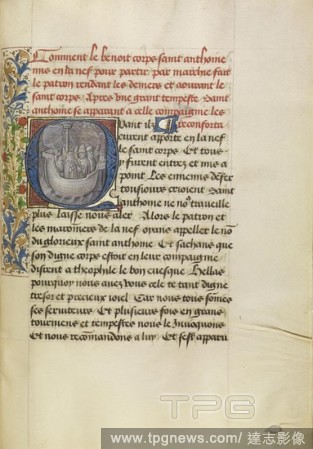 Comment le benoit corps saint anthoine
mis en la nef pour partir par
le patron rendant les deniers et
saint corps Apres une grant tempeste Saint
anthoine se apparut a celle compaignie les
reconforta
Quant ilz
eurent apporte en la nef
le saint corps Et tous
y furent entrez et mis a
point Les ennemis
tousiours crioient Saint
anthoine ne no9 travueille
plus laisse nous aler Alors le patron et
les maronniers de la nef oyans appeller le no
du glorieux saint anthoine Et sachans que
son digne corps estoit en leur compaignie
disrent a theophile le bon evesque Hellas
pourquoy nous avez vous cele ce tant digne
tresor et precieux ioiel Car nous tous somes
ses serviteurs Et plusieurs fois en grans
tourmens et tempestes nous le Invocquons
Et nous recomandons a luy Et sest apparu
TPG
www.tpgnews.com/達志影像